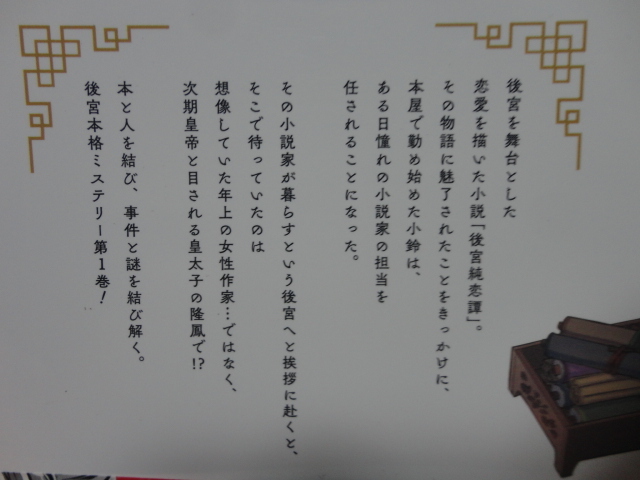 後宮を舞台とした
恋愛を描いた小説「後宮純恋譚」。
その物語に魅了されたことをきっかけに、
本屋で勤め始めた小鈴は、
ある日憧れの小説家の担当を
任されることになった。
その小説家が暮らすという後宮へと挨拶に赴くと、
そこで待っていたのは
想像していた年上の女性作家…ではなく、
次期皇帝と目される皇太子の隆鳳で!?
本と人を結び、事件と謎を結び解く。
後宮本格ミステリー第1巻!